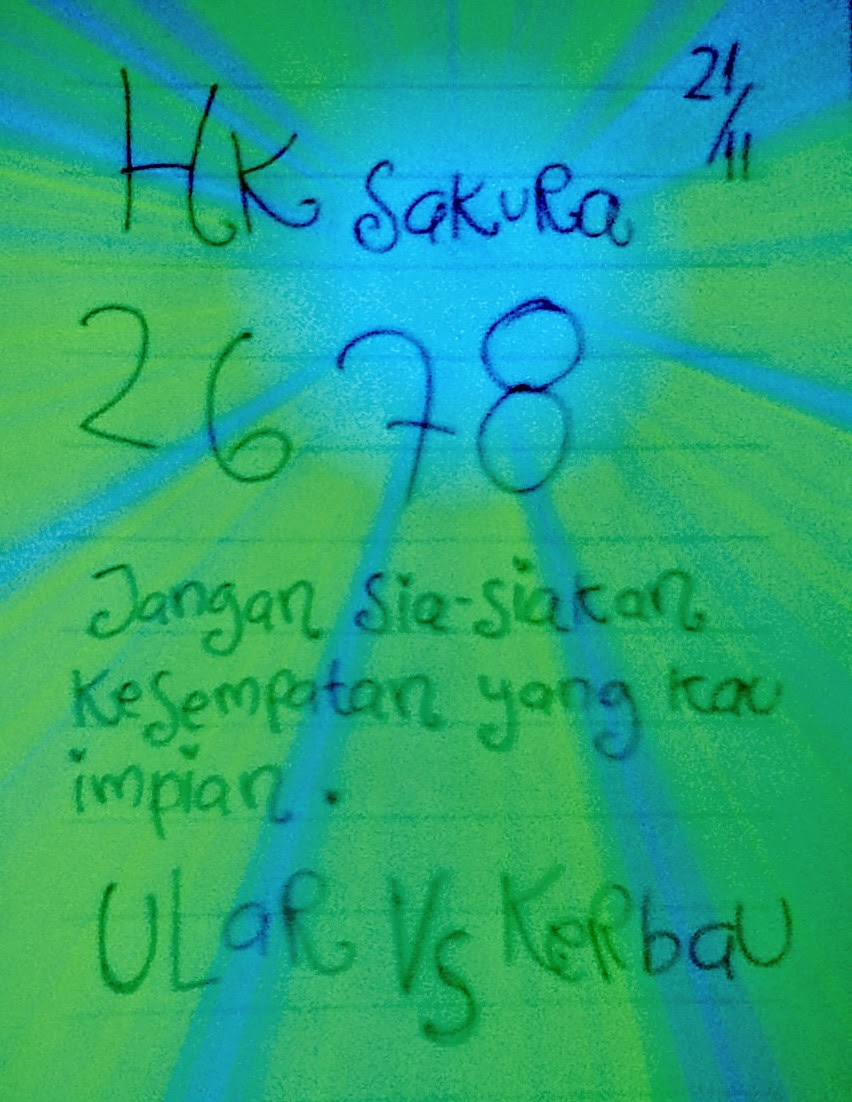 21/11
HK SakuRa
2678
Jangan sia-siakan
Kesempatan yang kau
impian.
ULaR Vs KeRbaU